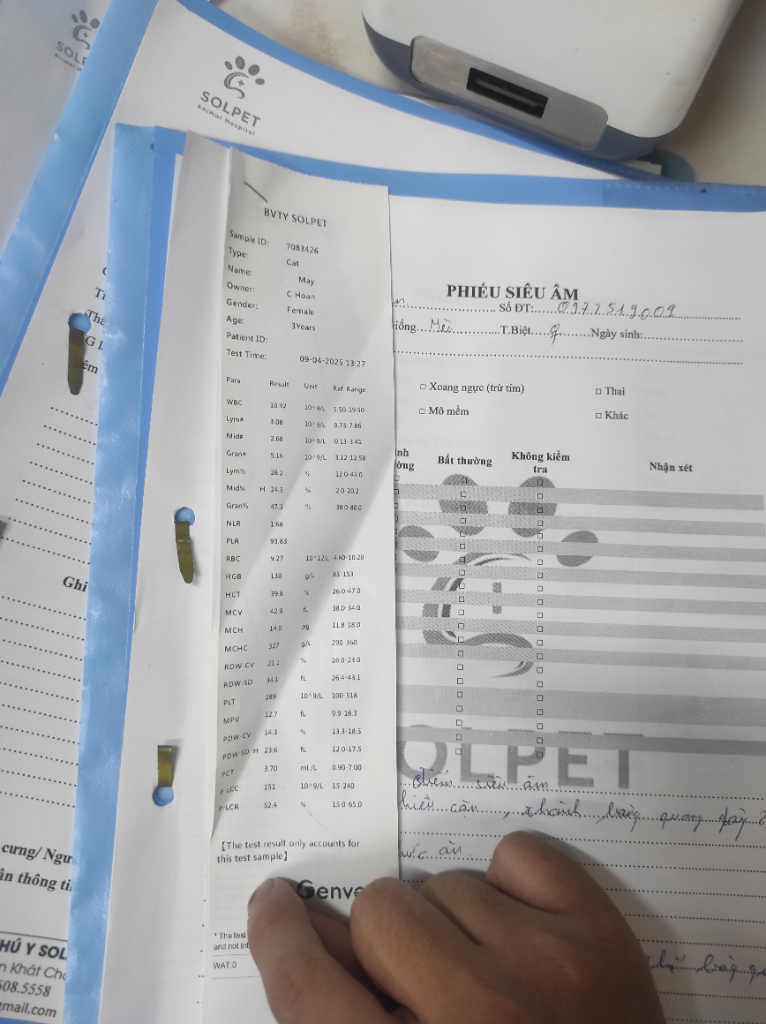 SOLPET
SOLPET
Animal Hospital
BVTY SOLPET
Sample ID: 7083426
Type: Cat
Name: May
Owner: C Hoan
Gender: Female
Age: 3Years
Patient ID:
Test Time: 09-04-2025 13:27
Para Result Unit Ref. Range
WBC 10.92 10^9/L 5.50-19.50
Lym# 3.08 10^9/L 0.73-7.86
Mid# 2.68 10^9/L 0.13-3.41
Gran# 5.16 10^9/L 3.12-12.58
Lym% 28.2 % 12.0-45.0
Mid% H 24.5 % 2.0-20.2
Gran% 47.3 % 38.0-86.0
NLR 1.68
PLR 93.83
RBC 9.27 10^12/L 4.60-10.20
HGB 130 g/L 85-153
HCT 39.8 % 26.0-47.0
MCV 42.9 fL 38.0-54.0
MCH 14.0 pg 11.8-18.0
MCHC 327 g/L 290-360
RDW-CV 21.1 % 16.0-23.0
RDW-SD 34.1 fL 26.4-43.1
PLT 289 10^9/L 100-518
MPV 12.7 fL 9.9-16.3
PDW-CV 14.3 % 13.3-18.5
PDW-SD H 23.6 fL 12.0-17.5
PCT 3.70 mL/L 0.90-7.00
P-LCC 151 10^9/L 15-240
P-LCR 52.4 % 13.0-65.0
【The test result only accounts for
this test sample】
Genve
* The test
and not int
WAT:0
PHIẾU SIÊU ÂM
Số ĐT: 0977519009
iống Mèo T.Biệt ♀ Ngày sinh:
□ Xoang ngực (trừ tim) □ Thai
□ Mô mềm □ Khác
Bất thường Không kiểm tra Nhận xét
SOLPET
điểm siêu âm
, thành bàng quang dày
Ghi
cung/ Ngu
ân thông ti
HÚ Y SOL
n Khát Ch
508.5558
gmail.com